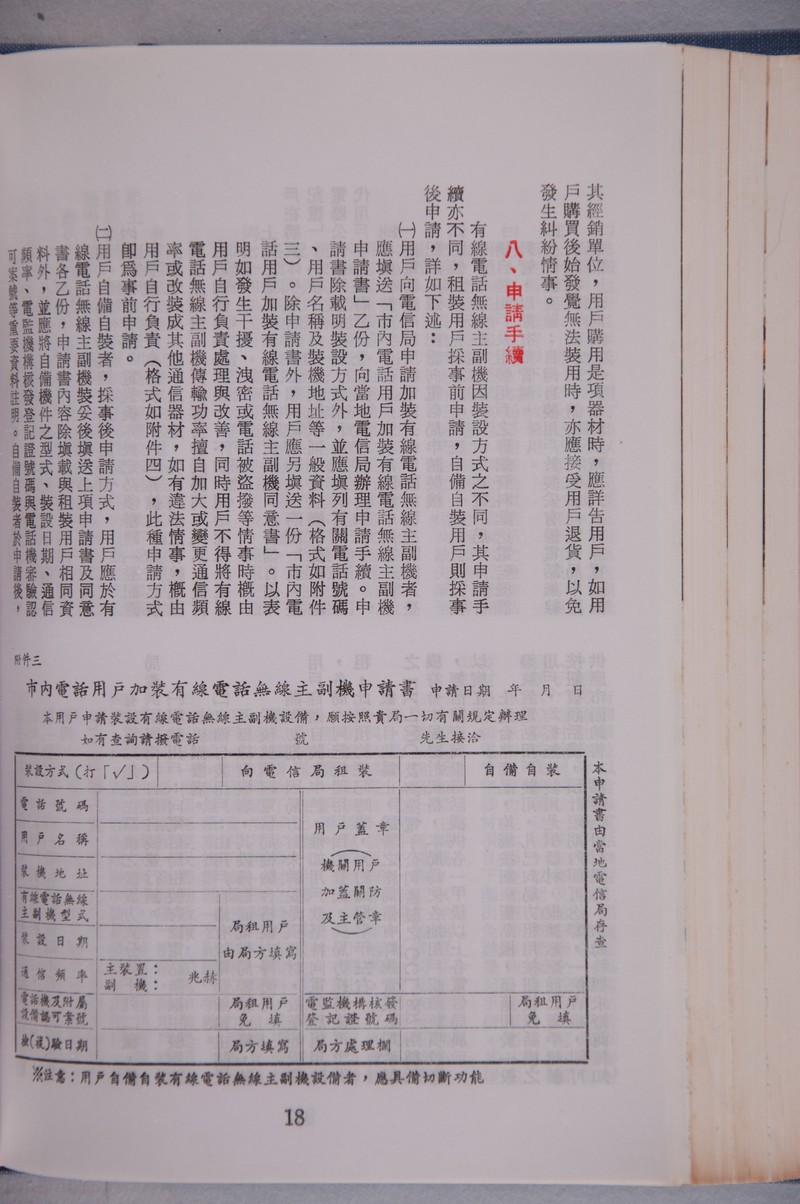 其經銷單位，用戶購用是項器材時，應詳告用戶，如用
戶購買後始發覺無法裝用時，亦應接受用戶退貨，以免
發生糾紛情事。
八、申請手續
有線電話無線主副機因裝設方式之不同，其申請手
續亦不同，租裝用戶採事前申請，自備自裝用戶則採事
後申請，詳如下述：
㈠用戶向電信局申請加裝有線電話無線主副機者，
應塡送「市內電話用戶加裝有線電話無線主副機
申請書」乙份，向當地電信局辦理申請手續。申
請書除載明裝設方式外，並應塡列有關電話號碼
、用戶名稱及裝機地址等一般資料（格式如附件
三）。除申請書外，用戶應另塡送一份「市內電
話用戶加裝有線電話無線主副機同意書」。以表
明如發生干擾、洩密或電話被盜撥等情事時槪由
用戶自行負責處理與改善，同時用戶不得將有線
電話無線主副機傳輸功率擅自加大或變更通信頻
率或改裝成其他通信器材，如有違法情事，槪由
用戶自行負責（格式如附件四），此種申請方式
卽爲事前申請。
㈡用戶自備自裝者，採事後申請方式，用戶應於有
線電話無線主副機裝妥後塡送上項申請書及同意
書各乙份，申請書內容除塡載與租裝用戶相同資
料外，並應將自備機件之型式、裝設日期、通信
頻率、電監機構核發登記證號碼與電話機審驗認
可案號等重要資料註明。自備自裝者於申請後，
附件三
市內電話用戶加裝有線電話無線主副機申請書 申請日期 年 月 日
本用戶申請裝設有線電話無線主副機設備，願按照貴局一切有關規定辦理
如有查詢請撥電話 號 先生接洽
裝設方式（打「√」） 向電信局租裝 自備自裝
電話號碼
用戶名稱
裝機地址
有線電話無線
主副機型式
裝設日期
通信頻率 主裝置：
副 機： 兆赫
局租用戶
由局方填寫
用戶蓋章
（機關用戶
加蓋關防
及主管章）
電話機及附屬
設備認可案號
局租用戶
免 填
電監機構核發
登記證號碼
局租用戶
免 填
檢(複)驗日期 局方填寫 局方處理欄
本申請書由當地電信局存查
※注意：用戶自備自裝有線電話無線主副機設備者，應具備切斷功能
18